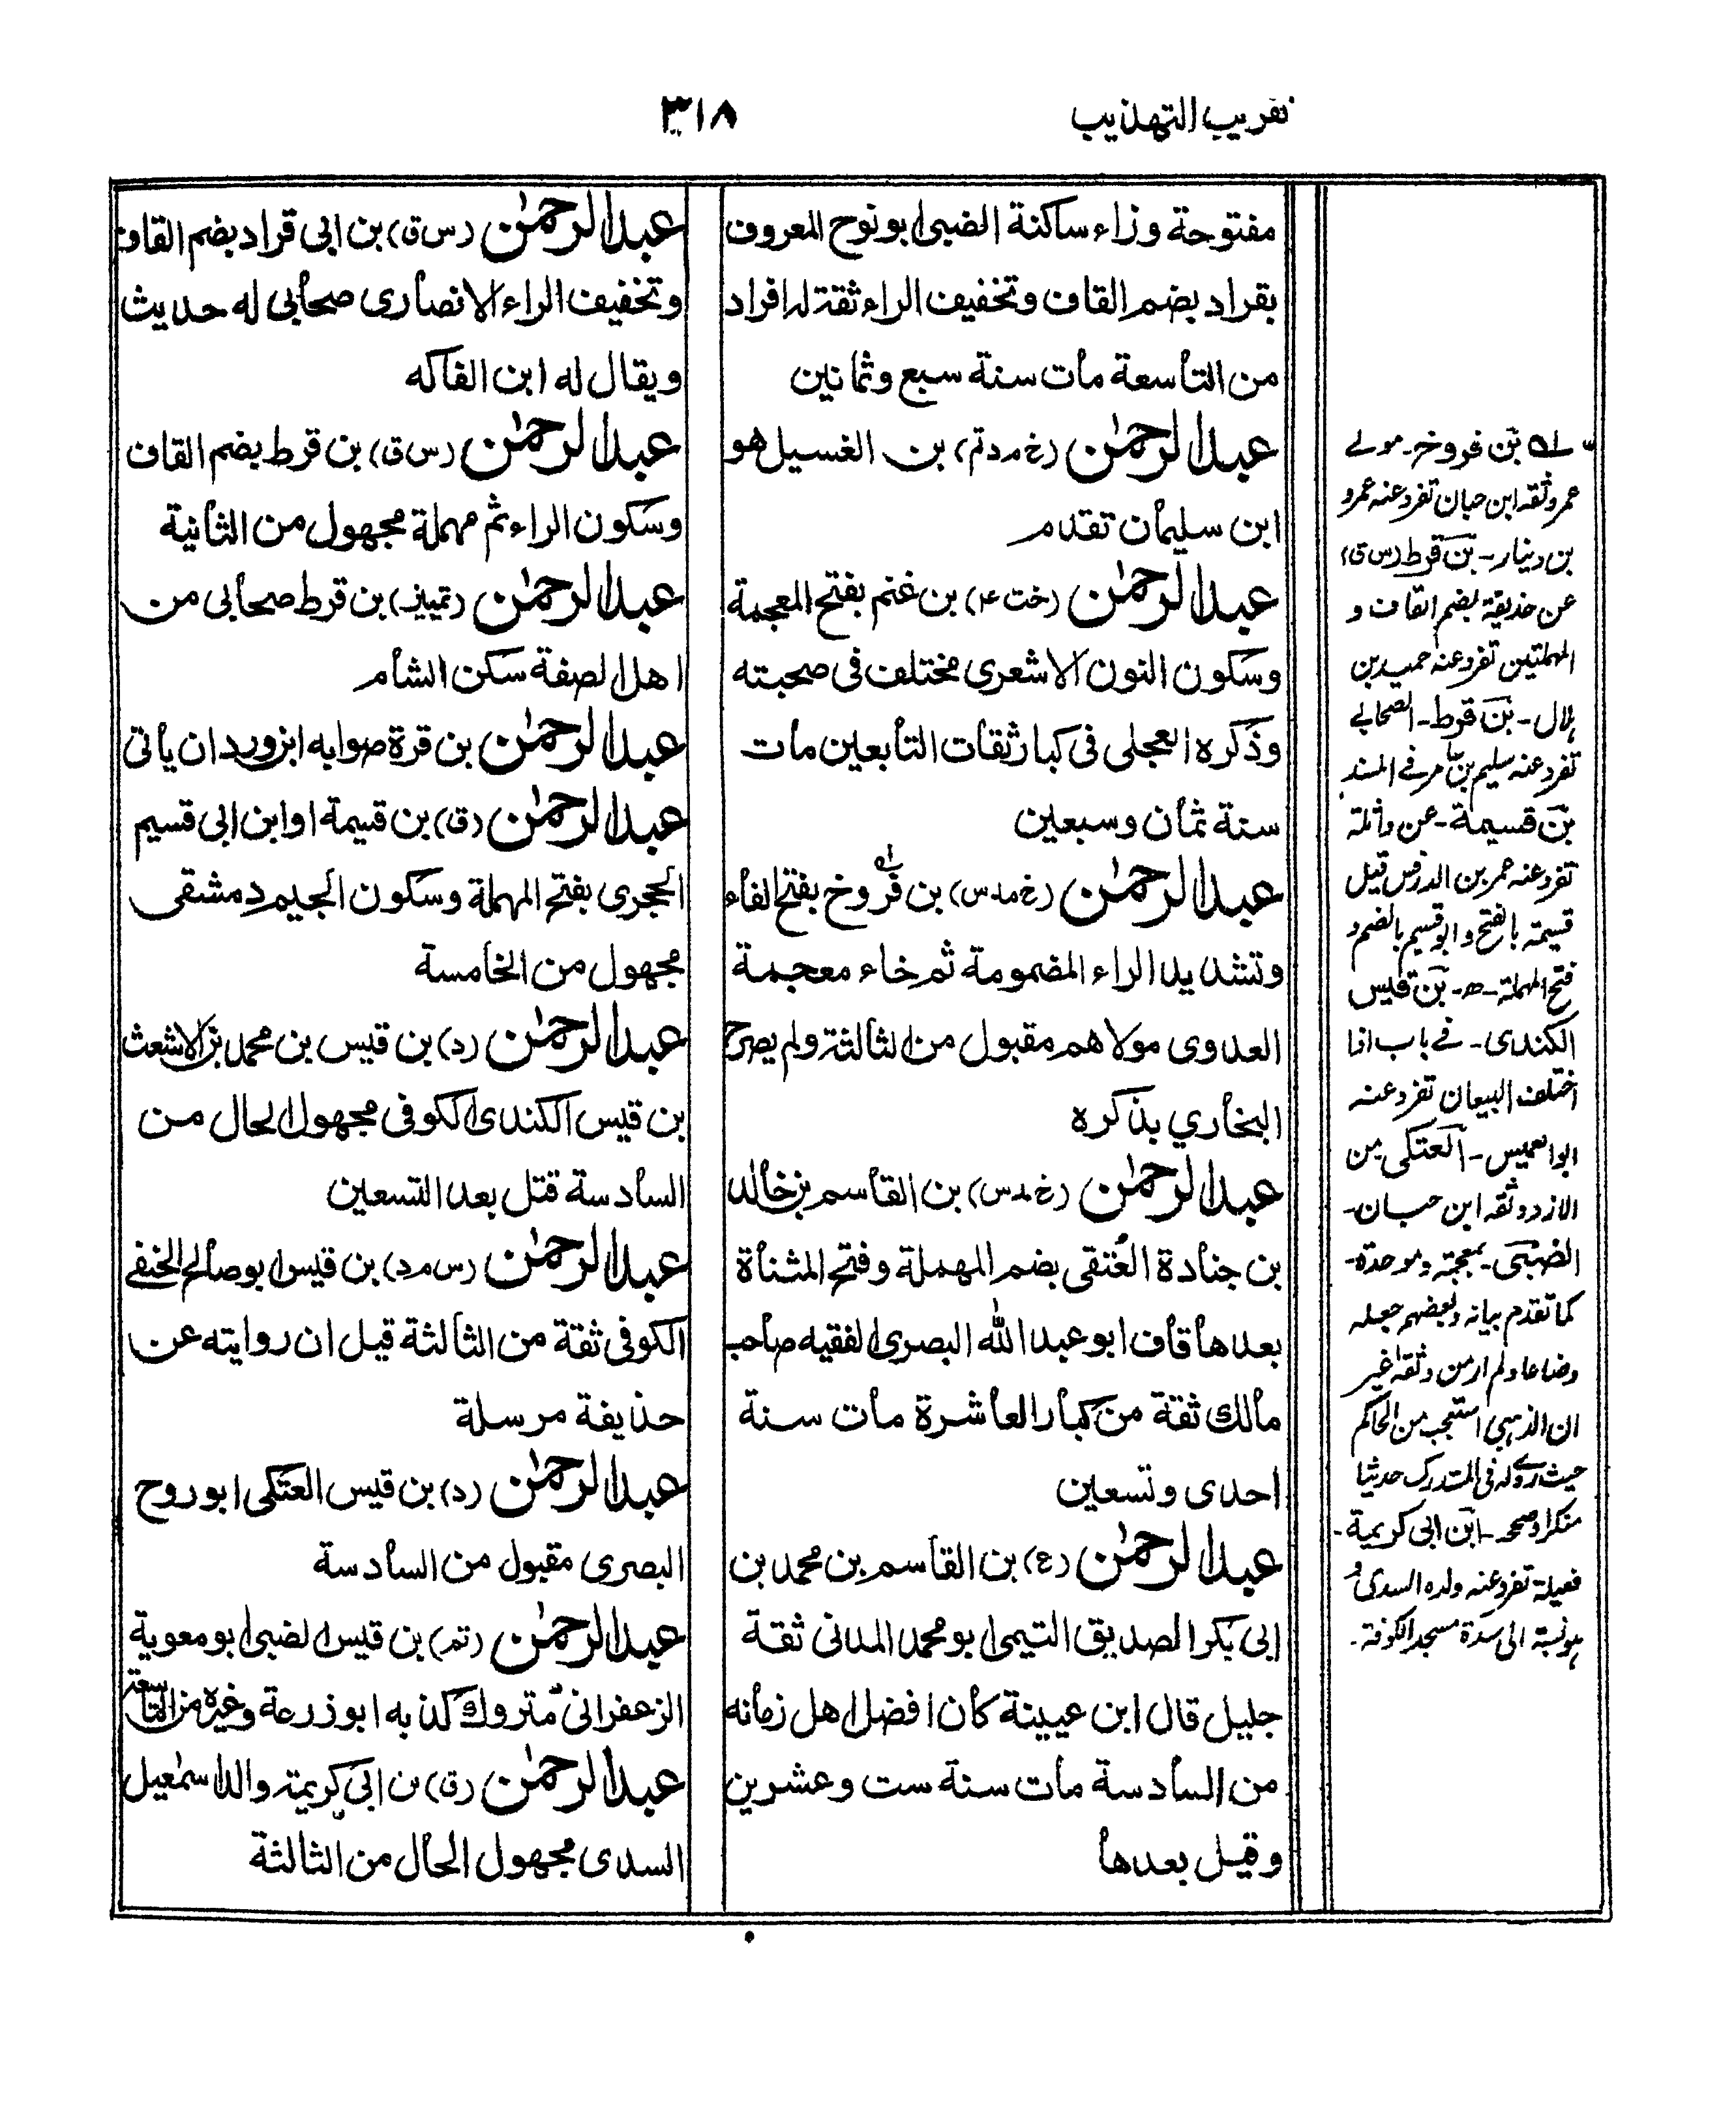 تقریب التهذیب
٣١٨
مفتوحة وزاء ساكنة الضبى ابو نوح المعروف
بقراد بضم القاف وتخفيف الراء ثقة له افراد
من التاسعة مات سنة سبع وثمانين
عبد الرحمٰن (خ م د تم) بن الغسيل هو
ابن سليمان تقدم
عبد الرحمٰن (خت ع) بن غنم بفتح المعجمة
وسكون النون الاشعرى مختلف فى صحبته
وذكره العجلى فى كبار ثقات التابعين مات
سنة ثمان وسبعين
عبد الرحمٰن (خ م س) بن فروخ بفتح الفاء
وتشديد الراء المضمومة ثم خاء معجمة
العدوى مولاهم مقبول من الثالثة ولم يصرح
البخاري بذكره
عبد الرحمٰن (خ مد س) بن القاسم بن خالد
بن جنادة العُتقى بضم المهملة وفتح المثناة
بعدها قاف ابو عبد الله البصرى الفقيه صاحب
مالك ثقة من كبار العاشرة مات سنة
احدى وتسعين
عبد الرحمٰن (ع) بن القاسم بن محمد بن
ابى بكر الصديق التيمى ابو محمد المدنى ثقة
جليل قال ابن عيينة كان افضل اهل زمانه
من السادسة مات سنة ست وعشرين
وقيل بعدها
عبد الرحمٰن (س ق) بن ابى قراد بضم القاف
وتخفيف الراء الانصارى صحابى له حديث
ويقال له ابن الفاكه
عبد الرحمٰن (س ق) بن قرط بضم القاف
وسكون الراء ثم مهملة مجهول من الثانية
عبد الرحمٰن (تمييز) بن قرط صحابى من
اهل الصفة سكن الشام
عبد الرحمٰن بن قرة صوابه ابن وردان ياتى
عبد الرحمٰن (ق) بن قسيمة او ابن ابى قسيم
الحجرى بفتح المهملة وسكون الجيم دمشقى
مجهول من الخامسة
عبد الرحمٰن (د) بن قيس بن محمد بن الاشعث
بن قيس الكندى الكوفى مجهول الحال من
السادسة قتل بعد التسعين
عبد الرحمٰن (س م د) بن قيس ابو صالح الحنفى
الكوفى ثقة من الثالثة قيل ان روايته عن
حذيفة مرسلة
عبد الرحمٰن (د) بن قيس العتكى ابو روح
البصرى مقبول من السادسة
عبد الرحمٰن (تم) بن قيس الضبى ابو معوية
الزعفرانى متروك كذبه ابو زرعة وغيره من التاسعة
عبد الرحمٰن (ق) بن ابى كريمة والد اسمٰعيل
السدى مجهول الحال من الثالثة
بن فروخ ـ مولے
عمر وثقه ابن حبان تفرد عنه عمرو
بن دينار ـ بن قرط (س ق)
عن حذيفة بضم القاف و
المهملتين تفرد عنه حميد بن
ہلال ـ بن قرط ـ الصحابے
تفرد عنه سليم بن عامر فے المسند
بن قسيمة ـ عن واثلة
تفرد عنه عمر بن الدرفس قيل
قسيمة بالفتح وابو قسيم بالضم و
فتح المهملة ـ بن قيس
الكندى ـ فے باب اذا
اختلف البيعان تفرد عنه
ابو العميس ـ العتكى من
الازد وثقه ابن حبان ـ
الضبى ـ بمعجمة وموحدة ـ
كما تقدم بيانه وبعضهم جعله
وضاعا ولم ار من وثقه غير
ان الذہبى استعجب من الحاكم
حيث روى له فى المستدرك حديثا
منكرا وصححه ـ ابن ابى كريمة ـ
فعيلة تفرد عنه ولده السدى و
ہو نسبة الى سدة مسجد الكوفة ـ